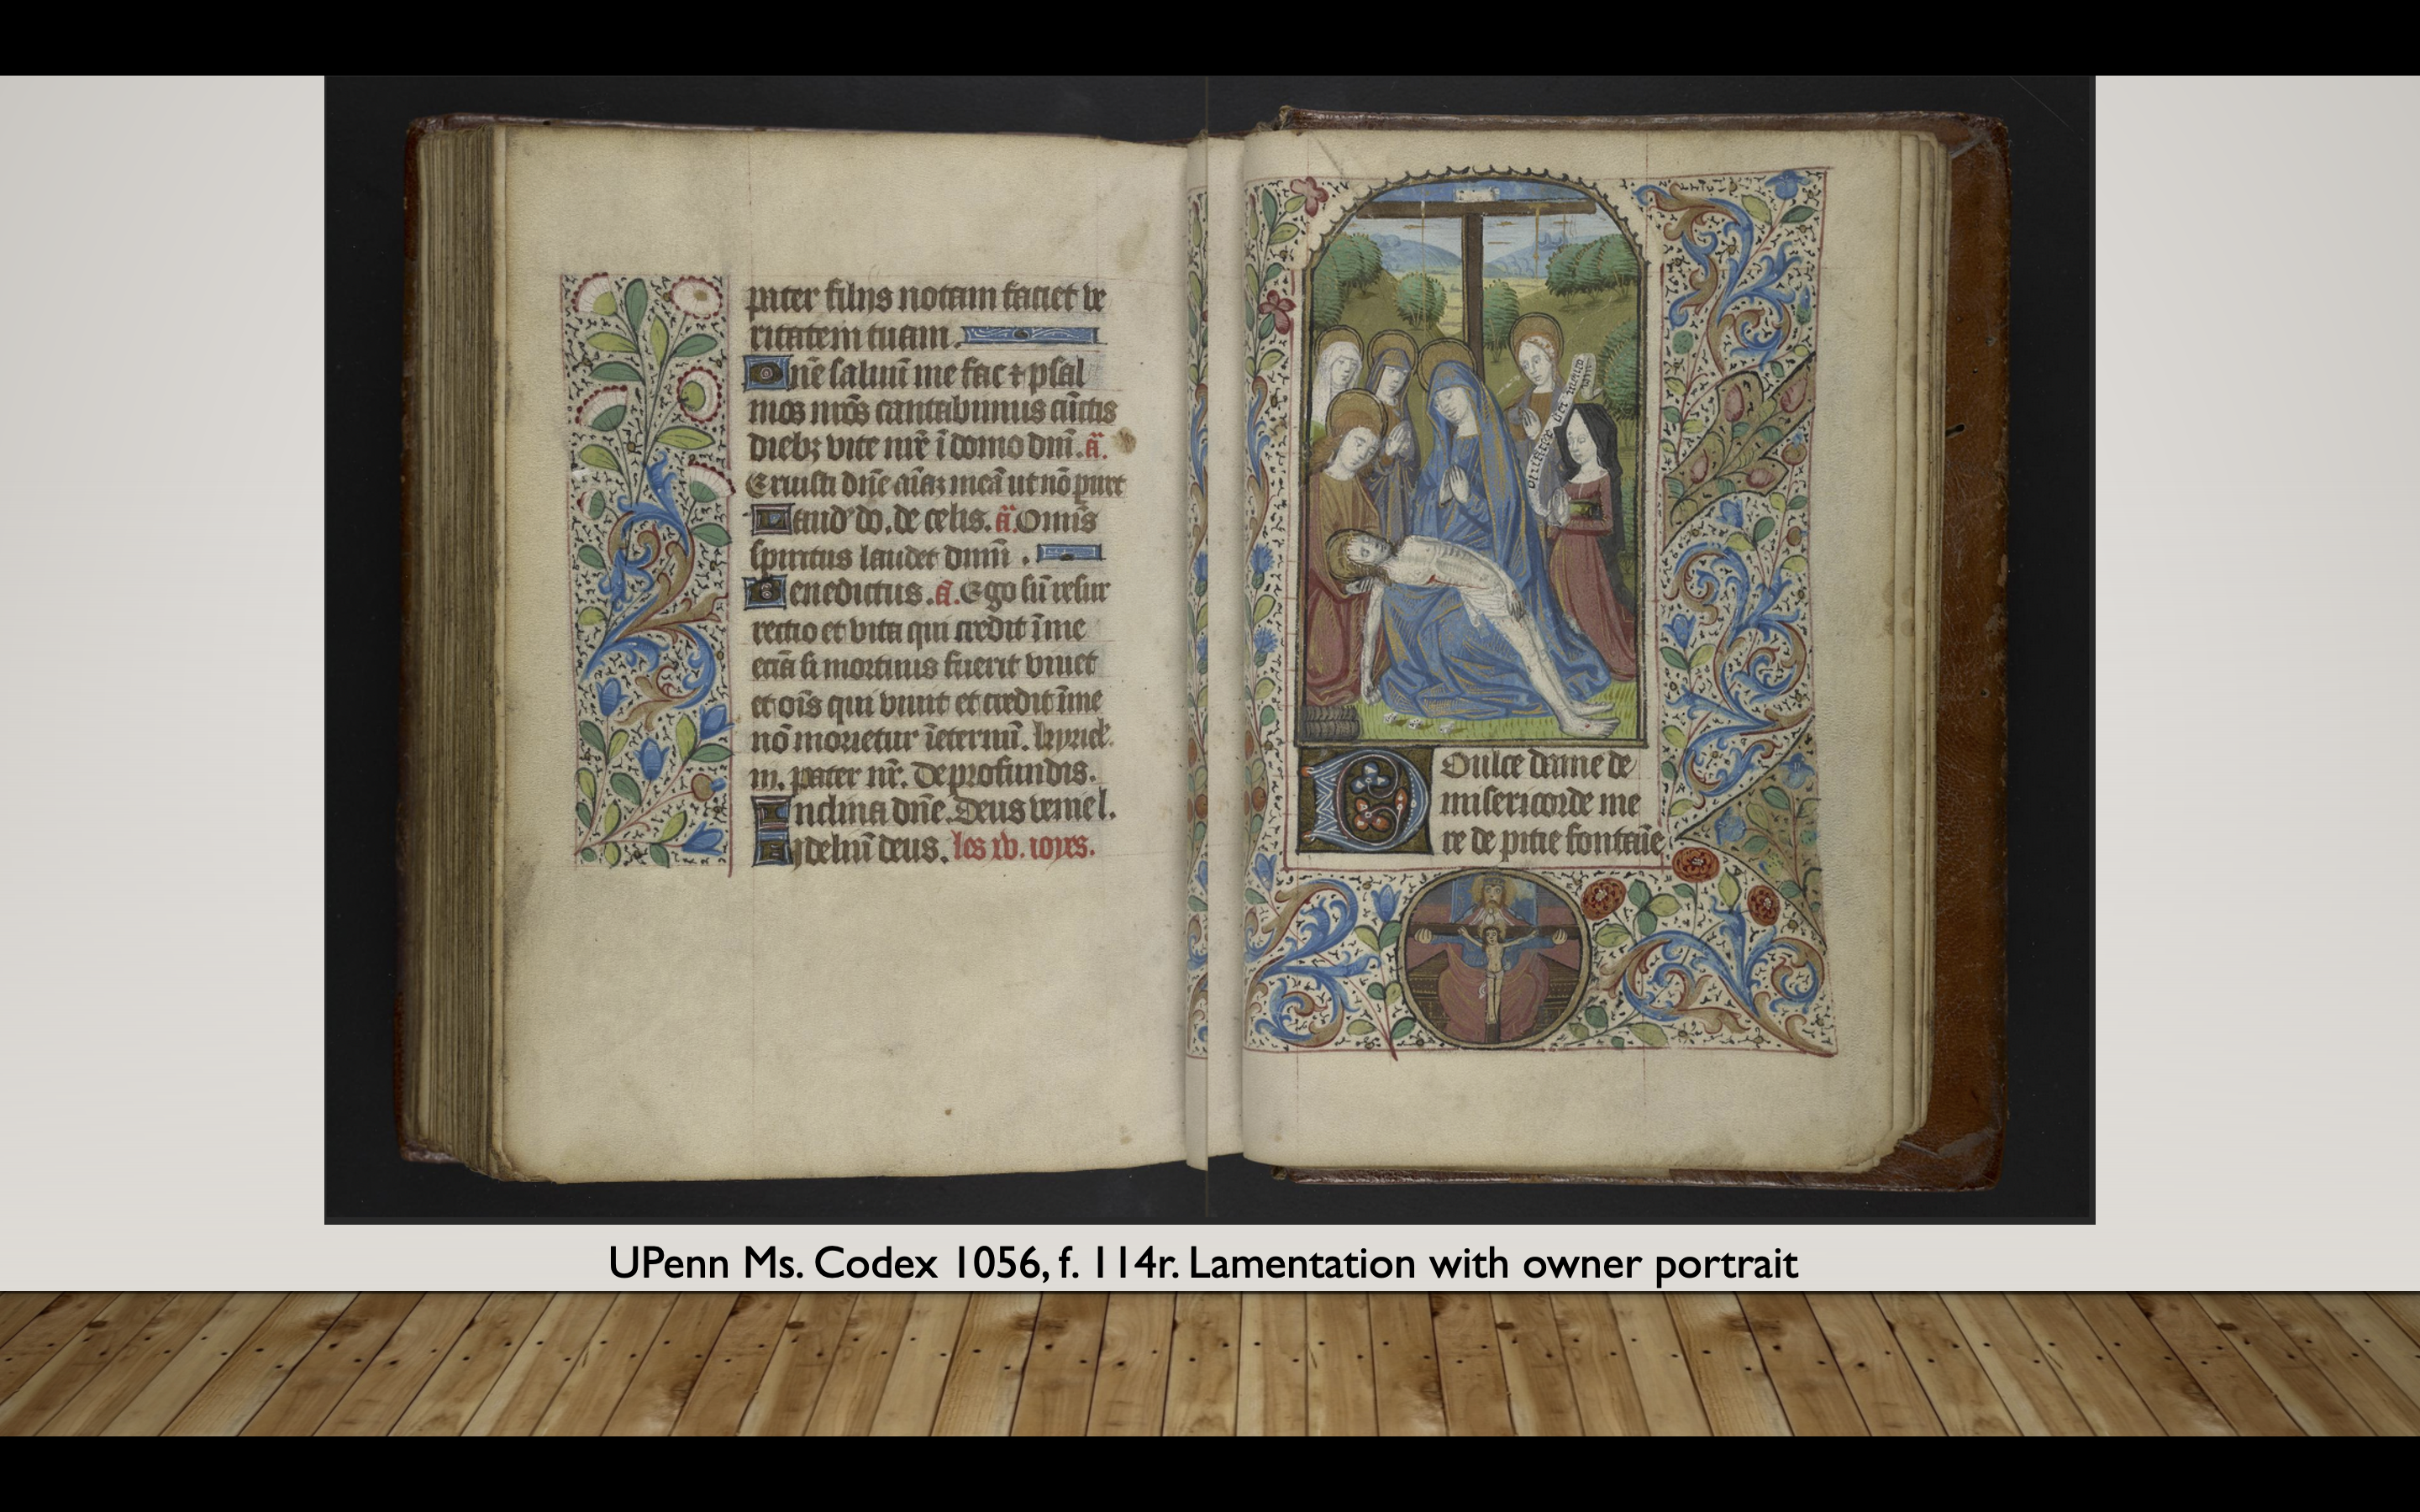 pater filijs notam faciet ve
ritatem tuam.
Dnē saluū me fac ⁊ psal
mos nr̄os cantabimus cūctis
diebꝫ vite nr̄e ī domo dnī. ā.
Eruisti dn̄e aīaꝫ meā ut nō piret
Laud' do. de celis. ā. Omīs
spiritus laudet dnm̄.
Benedictus. ā. Ego sū resur
rectio et vita qui credit ī me
eciā si mortuus fuerit viuet
et oīs qui viuit et credit ī me
nō morietur īeternū. kyriel'.
m. pater nr̄. De profundis.
Inclina dn̄e. Deus veniel.
Fideliū deus. les xv. ioyes.
mater dei memento mei
Doulce dame de
misericorde me
re de pitie fontaīe
UPenn Ms. Codex 1056, f. 114r. Lamentation with owner portrait